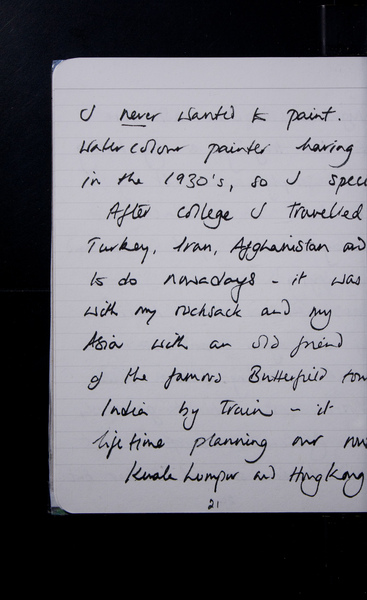 I never wanted to paint.
Watercolour painter having
in the 1930's, so I spec
After college I travelled
Turkey, Iran, Afghanistan and
to do nowadays - it was
with my rucksack and my
Asia with an old friend
of the famous Butterfield tou
India by Train - it
lifetime planning our
Kuala Lumpur and Hong Kong
21